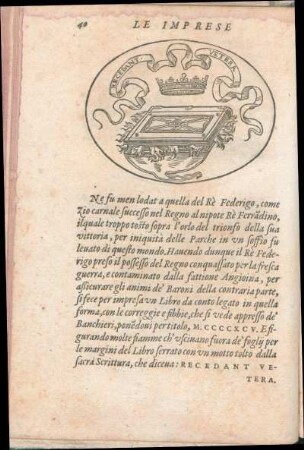 40 LE IMPRESE
RECEDANT VETERA
Ne fu men lodat a quella del Rè Federigo, come
Zio carnale successo nel Regno al nipote Rè Ferrãdino,
il quale troppo tosto sopra l'orlo del trionfo della sua
vittoria, per iniquità delle Parche in vn soffio fu
leuato di questo mondo. Hauendo dunque il Rè Fede-
rigo preso il possesso del Regno conquassato per la fresca
guerra, e contaminato dalla fattione Angioina, per
assicurare gli animi de' Baroni della contraria parte,
si fece per impresa vn Libro da conto legato in quella
forma, con le correggie e fibbie, che si vede appresso de'
Banchieri, ponẽdoui per titolo, M. CCCCXCV. E fi-
gurando molte fiamme ch' vsciuano fuora de' foglij per
le margini del Libro serrato con vn motto tolto dalla
sacra Scrittura, che diceua: RECEDANT VE-
TERA.